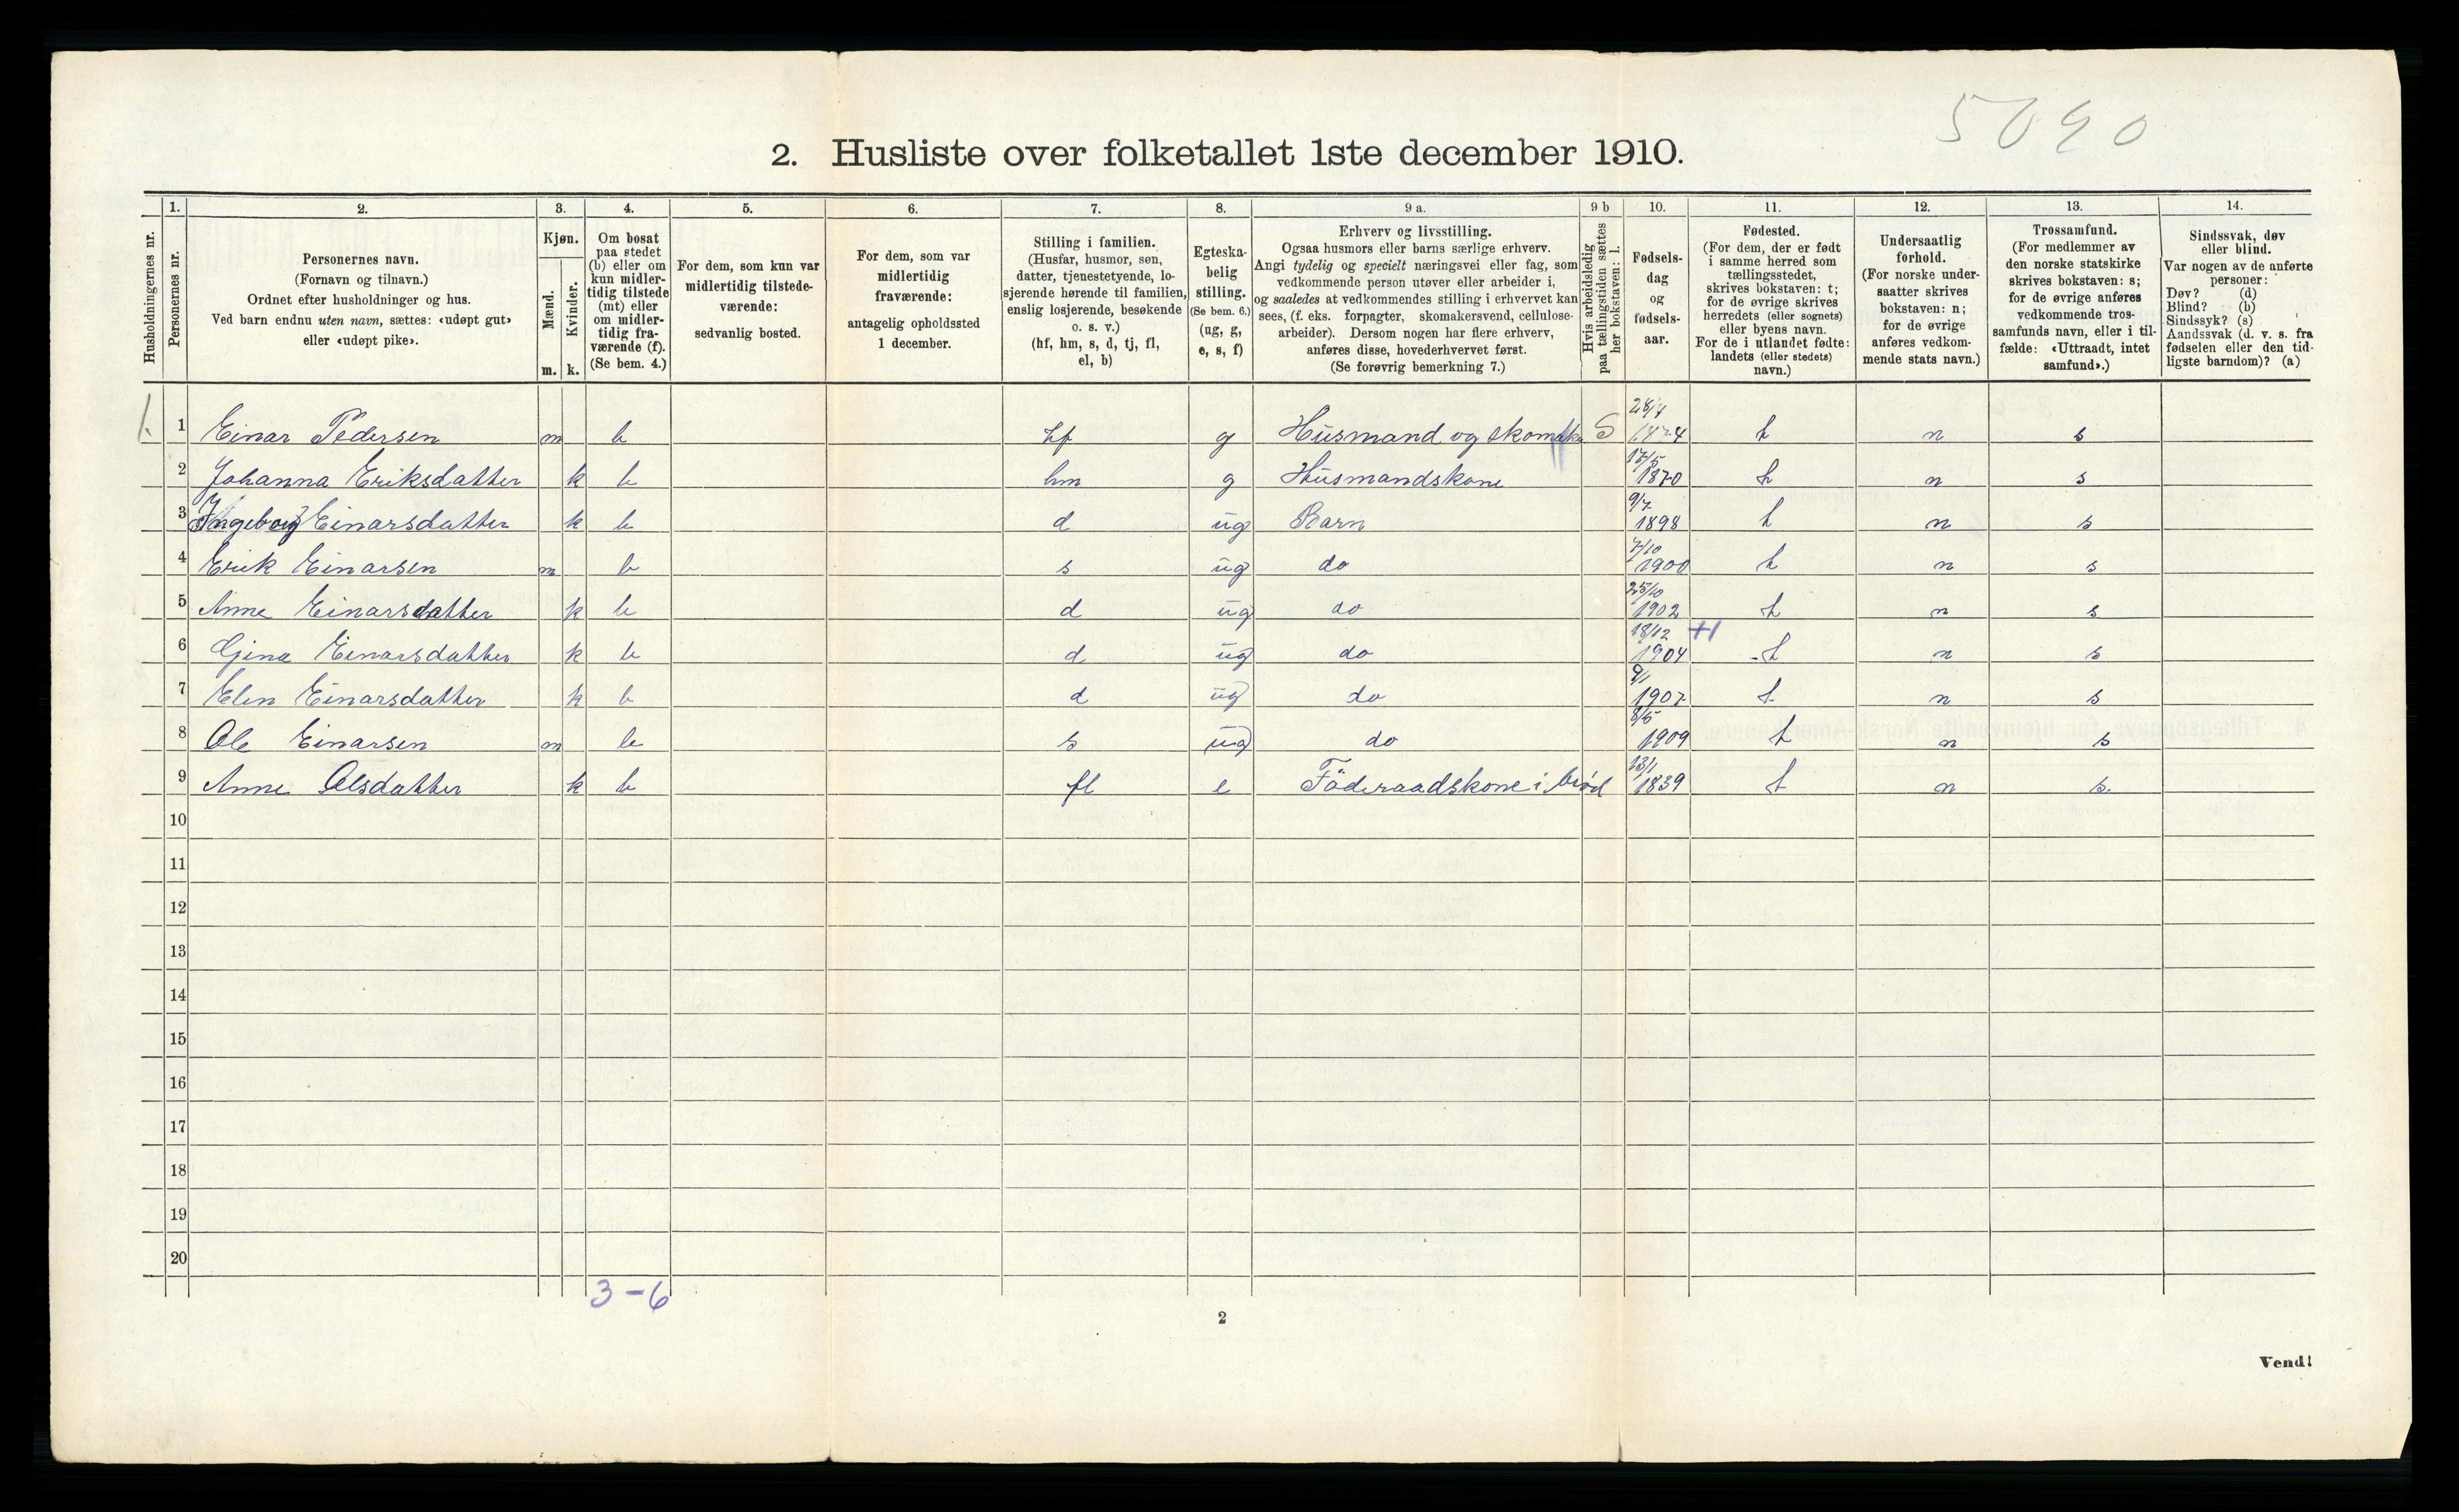 5090
2. Husliste over folketallet 1ste december 1910.
Husholdningernes nr.
1.
Personernes nr.
2.
Personernes navn.
(Fornavn og tilnavn.)
Ordnet efter husholdninger og hus.
Ved barn endnu uten navn, sættes: «udøpt gut»
eller «udøpt pike».
3.
Kjøn.
Mænd.
Kvinder.
m. k.
4.
Om bosat
paa stedet
(b) eller om
kun midler-
tidig tilstede
(mt) eller
om midler-
tidig fra-
værende (f).
(Se bem. 4.)
5.
For dem, som kun var
midlertidig tilstede-
værende:
sedvanlig bosted.
6.
For dem, som var
midlertidig
fraværende:
antagelig opholdssted
1 december.
7.
Stilling i familien.
(Husfar, husmor, søn,
datter, tjenestetyende, lo-
sjerende hørende til familien,
enslig losjerende, besøkende
o. s. v.)
(hf, hm, s, d, tj, fl,
el, b)
8.
Egteska-
belig
stilling.
(Se bem. 6.)
(ug, g,
e, s, f)
9 a.
Erhverv og livsstilling.
Ogsaa husmors eller barns særlige erhverv.
Angi tydelig og specielt næringsvei eller fag, som
vedkommende person utøver eller arbeider i,
og saaledes at vedkommendes stilling i erhvervet kan
sees, (f. eks. forpagter, skomakersvend, cellulose-
arbeider). Dersom nogen har flere erhverv,
anføres disse, hovederhvervet først.
(Se forøvrig bemerkning 7.)
9 b
Hvis arbeidsledig
paa tællingstiden sættes
her bokstaven: l.
10.
Fødsels-
dag
og
fødsels-
aar.
11.
Fødested.
(For dem, der er født
i samme herred som
tællingsstedet,
skrives bokstaven: t;
for de øvrige skrives
herredets (eller sognets)
eller byens navn.
For de i utlandet fødte:
landets (eller stedets)
navn.)
12.
Undersaatlig
forhold.
(For norske under-
saatter skrives
bokstaven: n;
for de øvrige
anføres vedkom-
mende stats navn.)
13.
Trossamfund.
(For medlemmer av
den norske statskirke
skrives bokstaven: s;
for de øvrige anføres
vedkommende tros-
samfunds navn, eller i til-
fælde: «Uttraadt, intet
samfund».)
14.
Sindssvak, døv
eller blind.
Var nogen av de anførte
personer:
Døv? (d)
Blind? (b)
Sindssyk? (s)
Aandssvak (d. v. s. fra
fødselen eller den tid-
ligste barndom)? (a)
1. 1 Einar Pedersen m b hf g Husmand og skomaker S 1874 t n s
2 Johanna Eriksdatter k b hm g Husmandskone 17/5 1870 t n s
3 Ingeborg Einarsdatter k b d ug Barn 9/7 1898 t n s
4 Erik Einarsen m b s ug do 7/10 1900 t n s
5 Anne Einarsdatter k b d ug do 25/10 1902 t n s
6 Gina Einarsdatter k b d ug do 18/12 1904 t n s
7 Elen Einarsdatter k b d ug do 1907 t n s
8 Ole Einarsen m b s ug do 8/5 1909 t n s
9 Anne Olsdatter k b fl e Föderaadskone i brød 13/1 1839 t n s.
10
11
12
13
14
15
16
17
18
19
20
3-6
2
Vend!